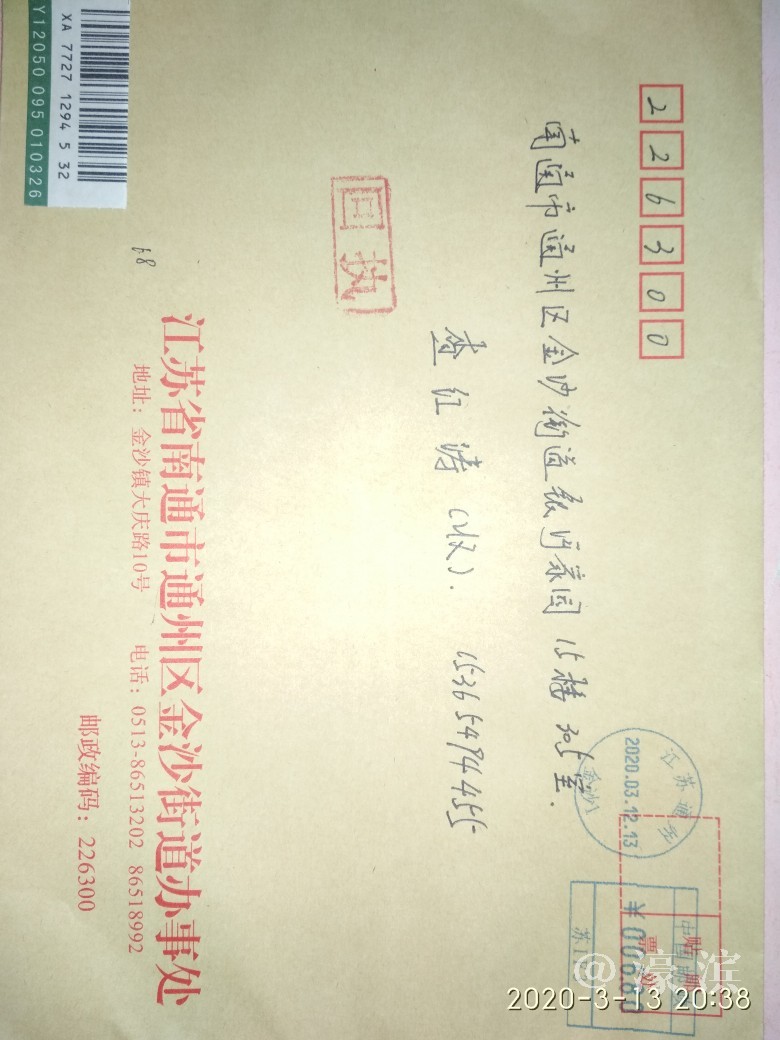 226300
南通市通州区金沙街道银河家园15幢305室.
查红涛(收). 15365494455
回执
XA 7727 1294 5 32
Y12050 095 010326
68
江苏通州
2020.03.12.13
金沙
中国邮
贴邮
票处
¥00680
苏
江苏省南通市通州区金沙街道办事处
地址：金沙镇大庆路10号 电话：0513-86513202 86518992
邮政编码：226300
@濠滨
2020-3-13 20:38